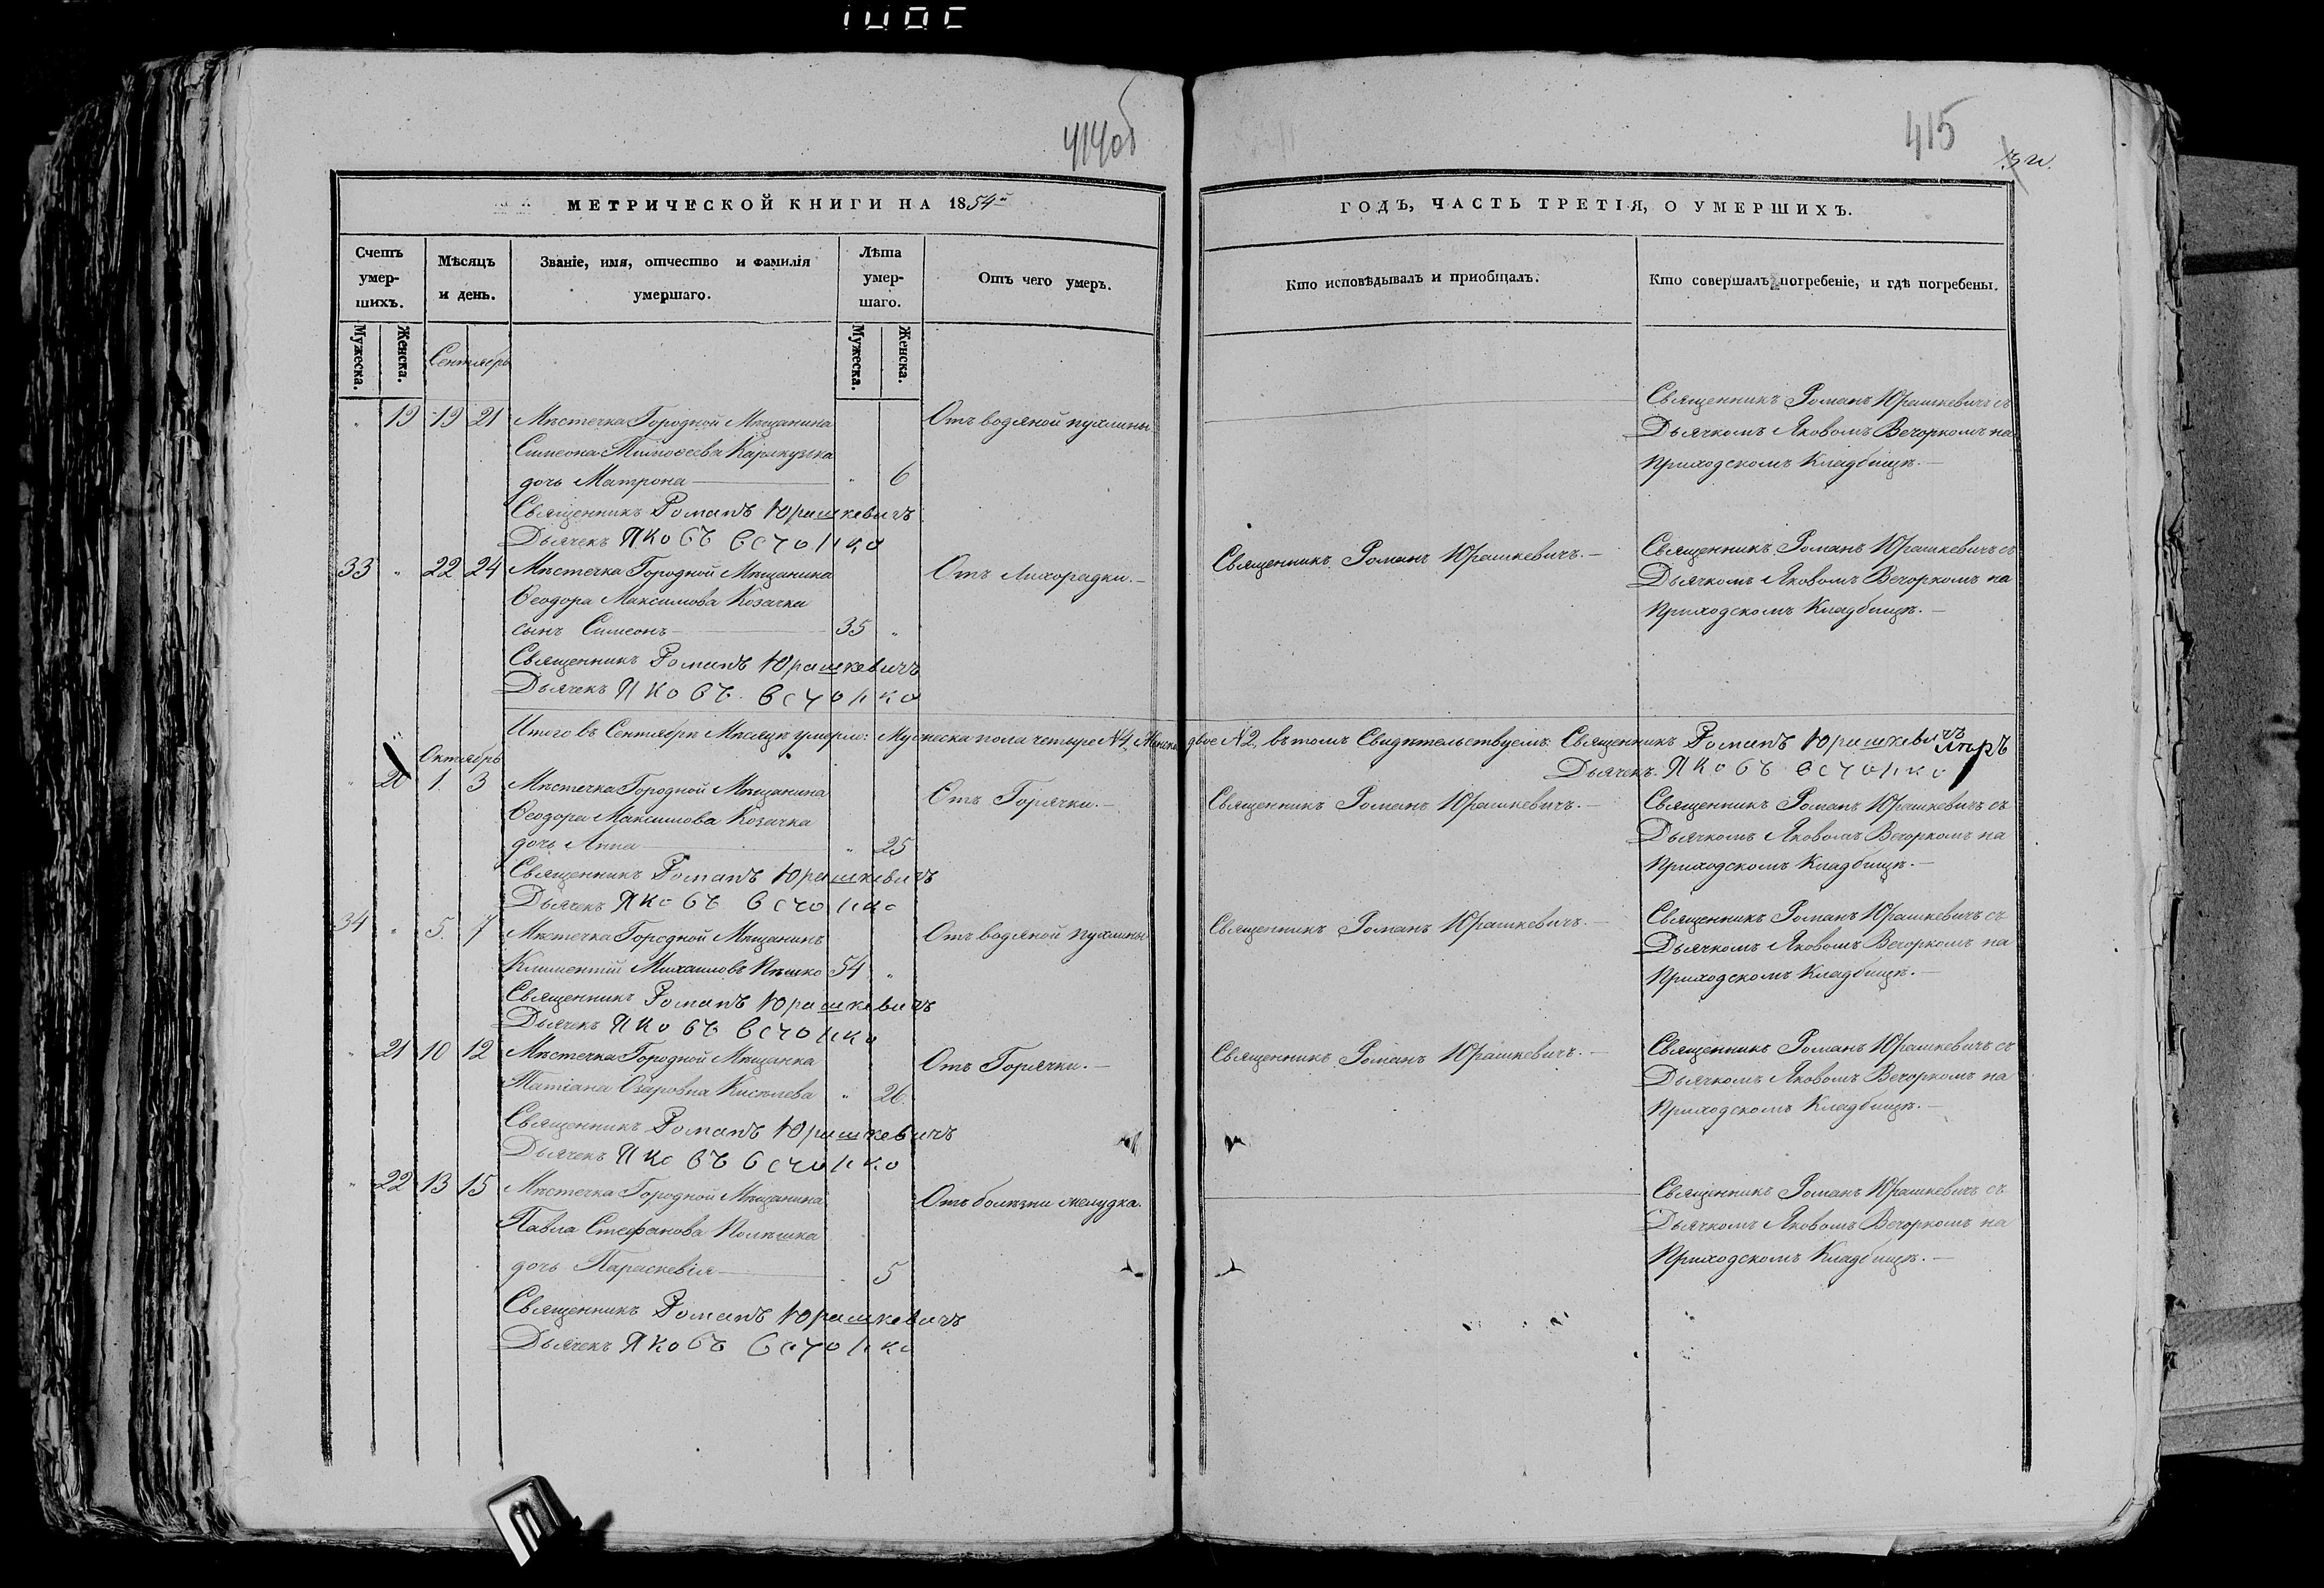 414об
415
МЕТРИЧЕСКОЙ КНИГИ НА 1854й
ГОДЪ, ЧАСТЬ ТРЕТІЯ, О УМЕРШИХЪ.
Счетъ умер-шихъ.
Мѣсяцъ и день.
Званіе, имя, отчество и фамилія умершаго.
Лѣта умер-шаго.
Отъ чего умеръ.
Кто исповѣдывалъ и приобщалъ.
Кто совершалъ погребеніе, и гдѣ погребены.
Мужеска.
Женска.
Мужеска.
Женска.
Сентябрь
" 19 19 21 Мѣстечка Городной Мѣщанина Отъ водяной пухлины
Симеона Тимоѳеева Каракузка
дочь Матрона — " 6
Священникъ Романъ Юрашкевичъ съ
Дьячкомъ Яковомъ Вечоркомъ на
Приходскомъ Кладбищѣ. —
Священникъ Романъ Юрашкевичъ
Дьячекъ Яковъ Вечорко
33 " 22 24 Мѣстечка Городной Мѣщанина Отъ Лихорадки. —
Ѳеодора Максимова Козачка
сынъ Симеонъ — 35 "
Священникъ Романъ Юрашкевичъ. —
Священникъ Романъ Юрашкевичъ съ
Дьячкомъ Яковомъ Вечоркомъ на
Приходскомъ Кладбищѣ. —
Священникъ Романъ Юрашкевичъ
Дьячекъ Яковъ Вечорко
Итого въ Сентябрѣ Мѣсяцѣ умерло: Мужеска пола четыре N4, Женска двое N2, въ томъ Свидѣтельствуемъ: Священникъ Романъ Юрашкевичъ
Дьячекъ Яковъ Вечорко
Октябрь
" 20 1. 3 Мѣстечка Городной Мѣщанина Отъ Горячки. —
Ѳеодора Максимова Козачка
дочь Анна — " 25
Священникъ Романъ Юрашкевичъ. —
Священникъ Романъ Юрашкевичъ съ
Дьячкомъ Яковомъ Вечоркомъ на
Приходскомъ Кладбищѣ. —
Священникъ Романъ Юрашкевичъ
Дьячекъ Яковъ Вечорко
34 " 5. 7 Мѣстечка Городной Мѣщанинъ Отъ водяной пухлины
Климентій Михаиловъ Пѣшко 54 "
Священникъ Романъ Юрашкевичъ. —
Священникъ Романъ Юрашкевичъ съ
Дьячкомъ Яковомъ Вечоркомъ на
Приходскомъ Кладбищѣ. —
Священникъ Романъ Юрашкевичъ
Дьячекъ Яковъ Вечорко
" 21 10 12 Мѣстечка Городной Мѣщанка Отъ Горячки. —
Татіана Озаровна Киселева " 26.
Священникъ Романъ Юрашкевичъ. —
Священникъ Романъ Юрашкевичъ съ
Дьячкомъ Яковомъ Вечоркомъ на
Приходскомъ Кладбищѣ. —
Священникъ Романъ Юрашкевичъ
Дьячекъ Яковъ Вечорко
" 22 13 15 Мѣстечка Городной Мѣщанина Отъ болѣзни желудка.
Павла Стефанова Полѣшка
дочь Параскевія — " 5
Священникъ Романъ Юрашкевичъ съ
Дьячкомъ Яковомъ Вечоркомъ на
Приходскомъ Кладбищѣ. —
Священникъ Романъ Юрашкевичъ
Дьячекъ Яковъ Вечорко